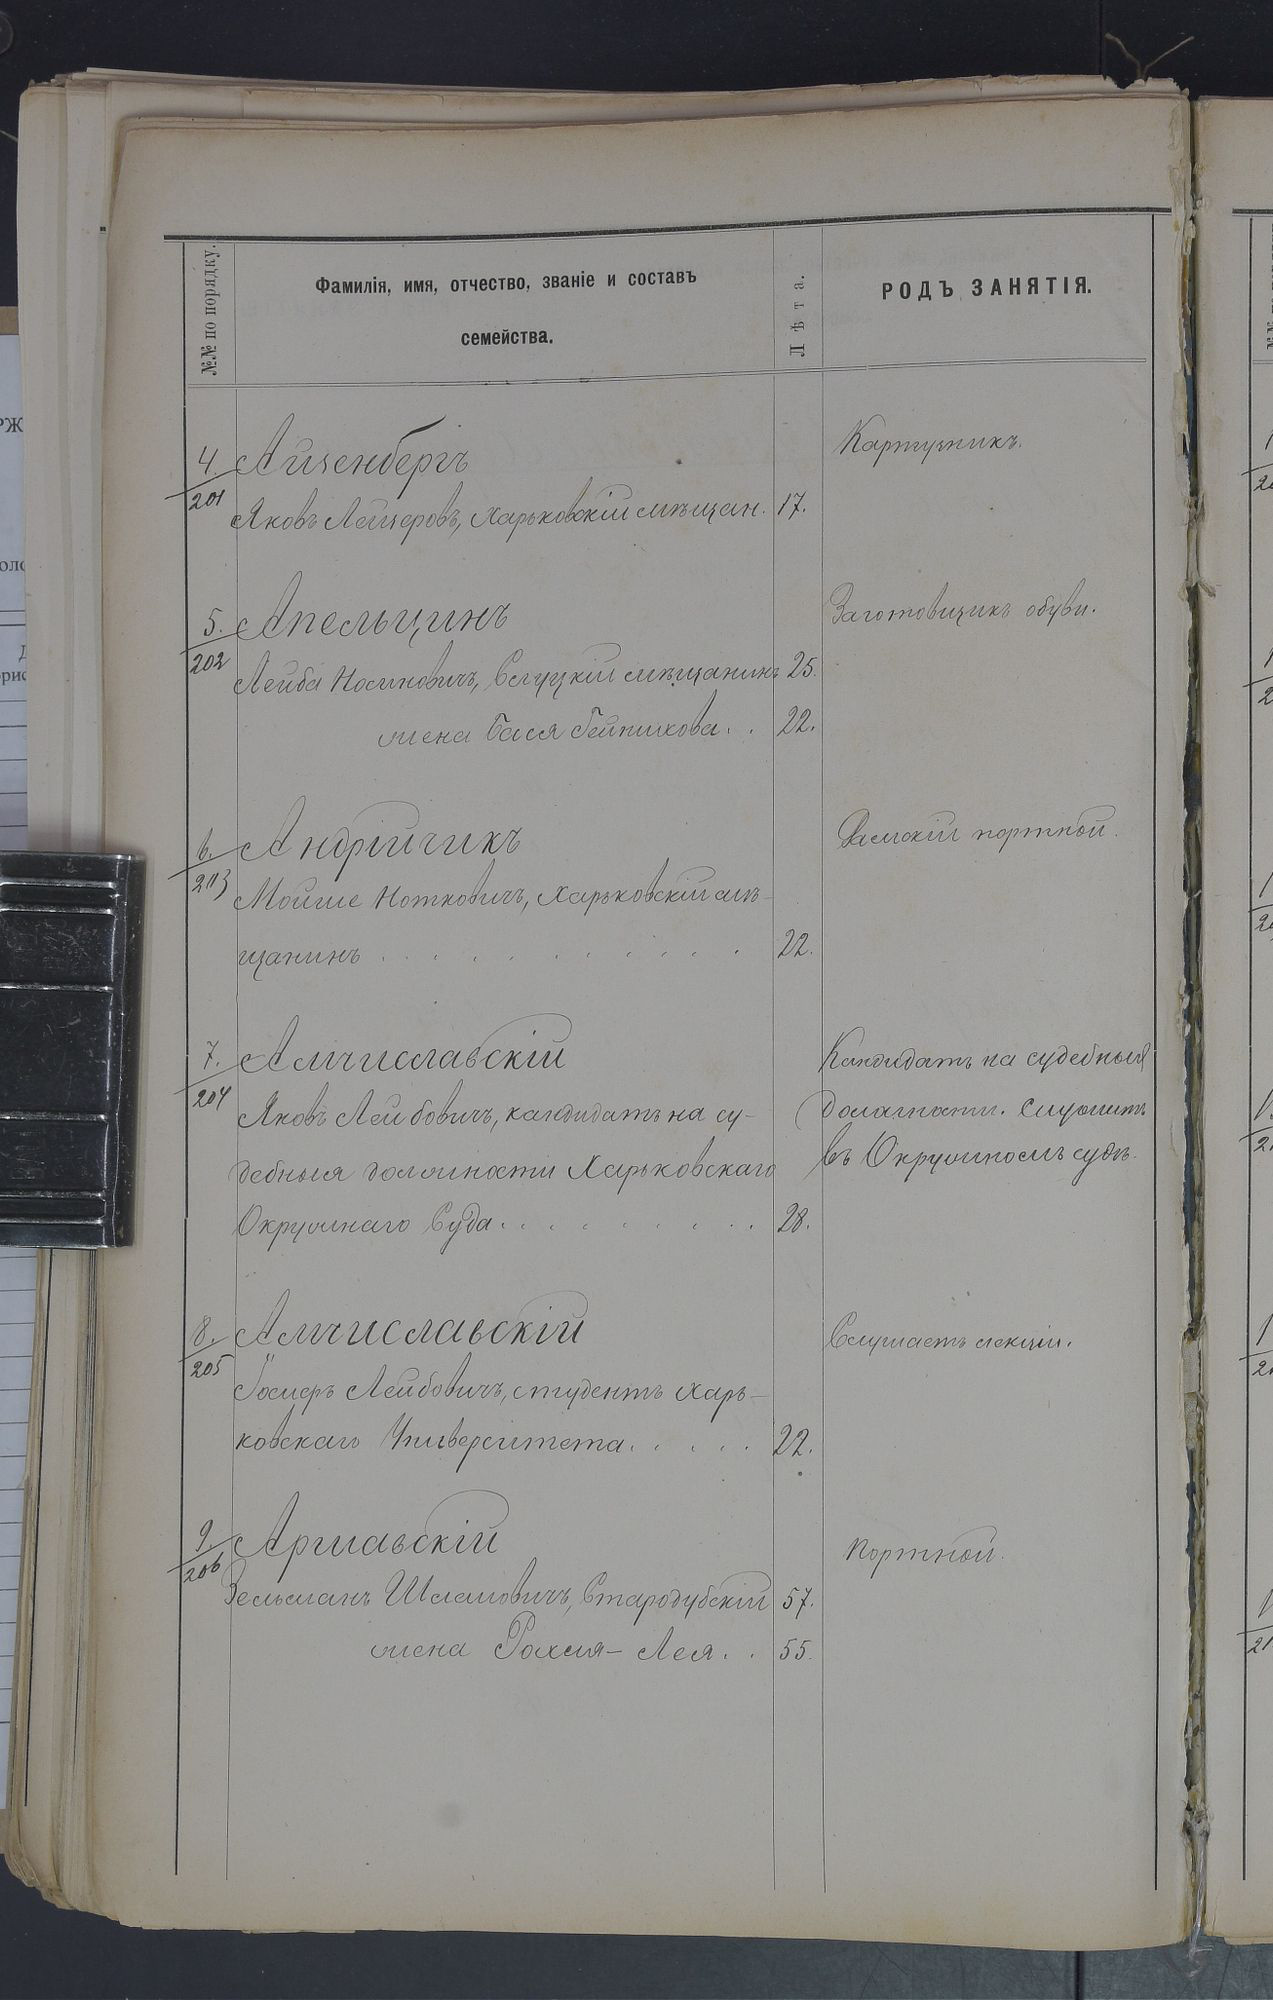 №№ по порядку.
Фамилія, имя, отчество, званіе и составъ
семейства.
Лѣта.
РОДЪ ЗАНЯТІЯ.
4. Айзенбергъ
201
Яковъ Лейзеровъ, Харьковскій мѣщан. 17.
Картузникъ.
5. Апельцинъ
202
Лейба Носиновичъ, Слуцкій мѣщанинъ 25.
жена Бася . . 22.
Заготовщикъ обуви.
6. Андрійчикъ
203
Мойше Нотковичъ, Харьковскій мѣ-
щанинъ . . . . . . . . . . 22.
Дамскій портной.
7. Амчиславскій
204
Яковъ Лейбовичъ, кандидатъ на су-
дебныя должности Харьковскаго
Окружнаго Суда . . . . . . . . . 28.
Кандидатъ на судебныя
должности. Служитъ
въ Окружномъ судѣ.
8. Амчиславскій
205
Іосифъ Лейбовичъ, студентъ Харь-
ковскаго Университета . . . . . 22.
Слушаетъ лекціи.
9 Аршавскій
206
Зельманъ Шлемовичъ, Стародубскій 57.
жена Рохля-Лея . . 55.
Портной.